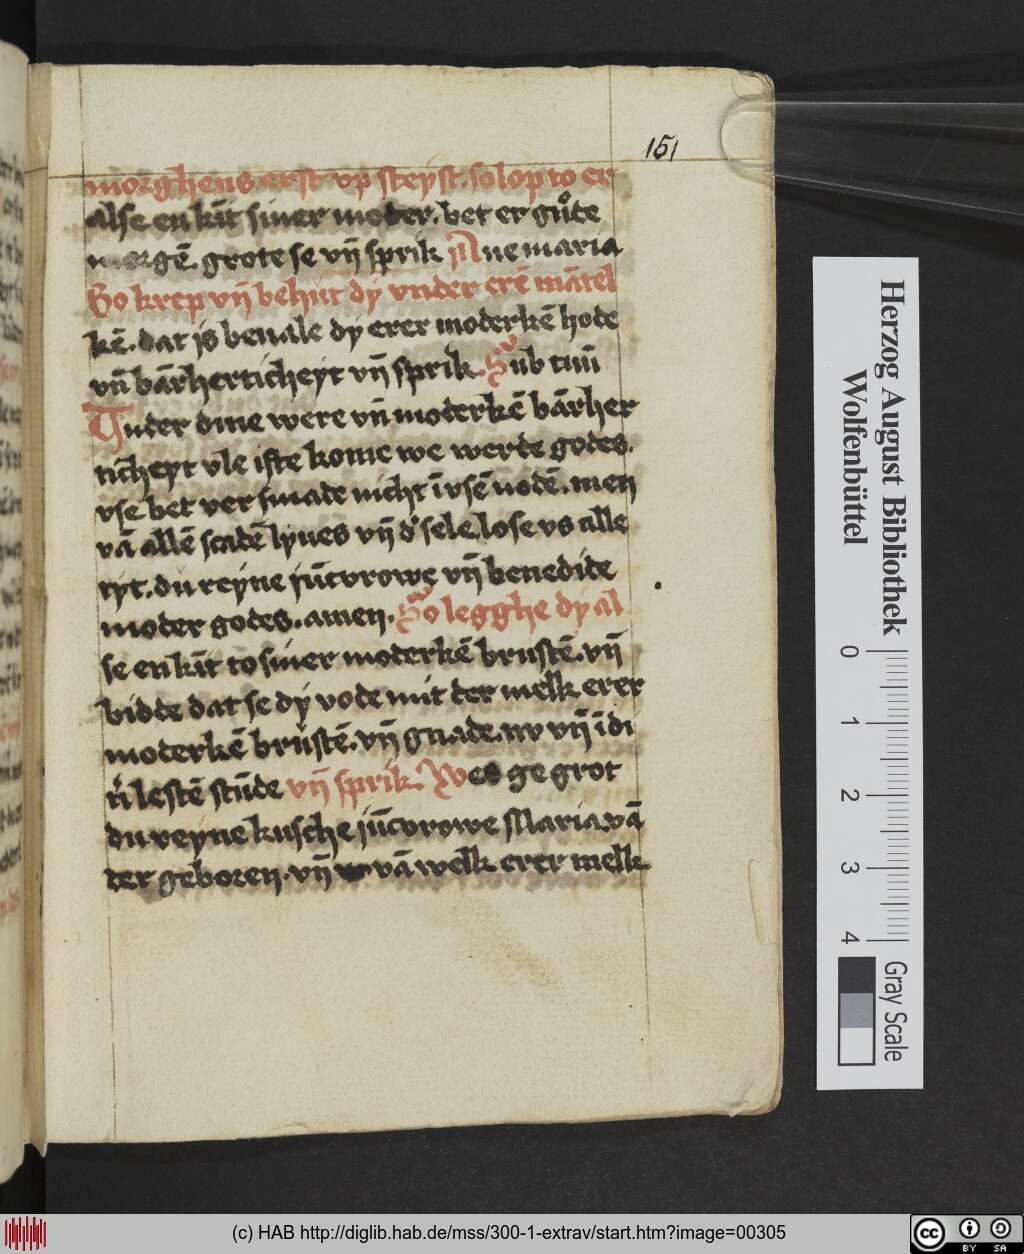 151
morghens erst vp steyst. so lop to er
alse en kīt siner moder. bet er gůte
morgē. grote se vn̄ sprik Aue maria
So krep vn̄ behut dy vnder erē mātel
kē. dat is beuale dy erer moderkē hode
vn̄ bārherticheyt vn̄ sprik. Sub tuū
Under dine were vn̄ moderkē bārher
ticheyt vle iste kome we werde godes.
vse bet versmade nicht ī vsē nodē. men
vā allē scadē lyues vn̄ d' sele lose vs alle
tyt. du reyne jūcvrowe vn̄ benedide
moder godes. amen. So legghe dy al
se en kīt to siner moderkē brustē. vn̄
bidde dat se dy vode mit der melk erer
moderkē brustē. vn̄ gnade. nv vn̄ ī di
ner lestē stūde vn̄ sprik. Wes ge grot
du reyne kusche jūcvrowe Maria. vā
der geboren. vn̄ vā welk erer melk
Herzog August Bibliothek
Wolfenbüttel
0 1 2 3 4
Gray Scale
(c) HAB http://diglib.hab.de/mss/300-1-extrav/start.htm?image=00305
cc BY SA